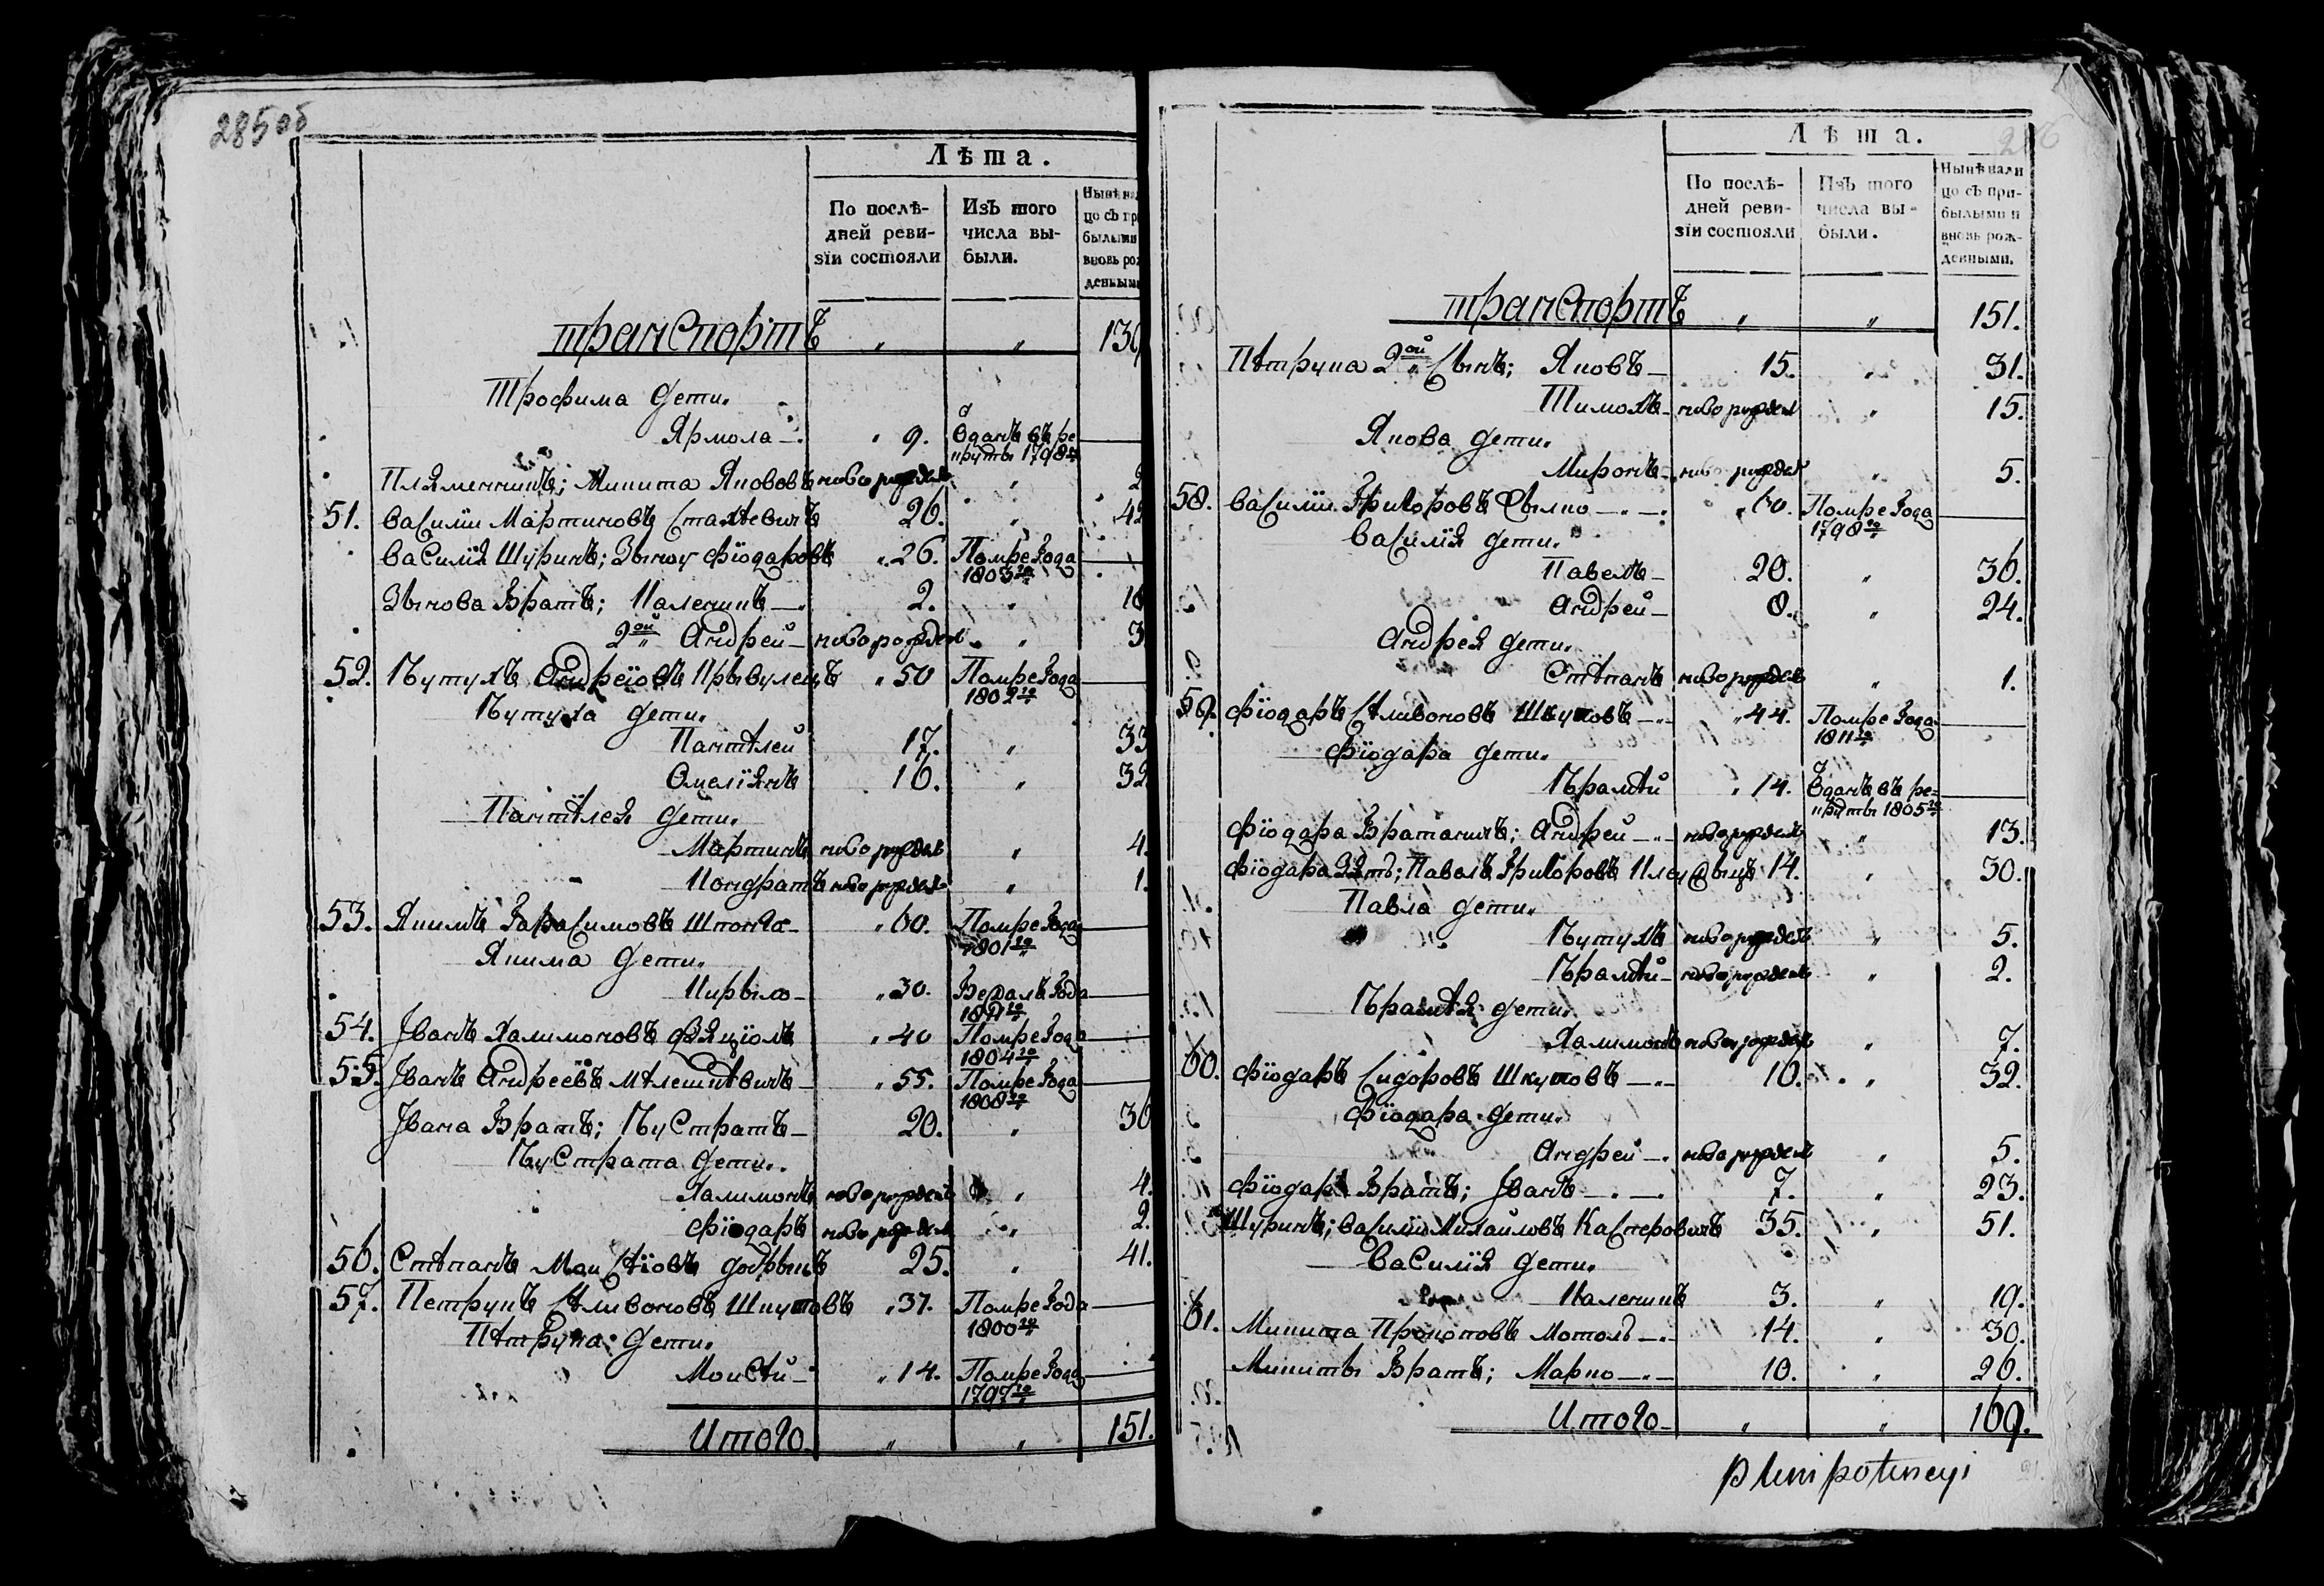 285 об
Лѣта.
По послѣдней ревизіи состояли
Изъ того числа выбыли.
Нынѣ на
цо съ пр
былыми
вновь ро
денным
транспортъ „ „ 130
Трофима дети.
Ярмола — „ 9. Отданъ въ ре
круты 1798го
Племенникъ; Микита Якововъ новорожден „ 2
51. Василiи Мартиновъ Стахевичъ 26. „ 42
Василiя Шуринъ; Зынов Фiодаровъ „ 26. Помре Года
1803го
Зынова Братъ; Калечикъ — 2. „ 18
2ой Андрей — новорожден „ 3
52. Андрѣiовъ „ 50 Помре Года
1802го
дети.
Пантѣлей 17. „ 33
Омелiянъ 16. „ 32
Пантѣлея дети.
Мартинъ новорожден „ 4.
Кондратъ новорожден „ 1.
53. Якимъ Гарасимовъ „ 60. Помре Года
1801го
Якима дети.
Кирыло — „ 30. Бежалъ Года
54. Иванъ Халимоновъ „ 40 Помре Года
1804го
55. Иванъ Андреевъ „ 55. Помре Года
1808го
Ивана Братъ; 20. „ 36
дети.
Халимонъ новорожден „ 4.
Фiодаръ новорожден „ 2.
56. Стѣпанъ Моисѣiовъ 25. „ 41.
57. Петрукъ Сѣливоновъ Шкутовъ „ 37. Помре Года
1800го
Пѣтрука дети.
Моисѣй — „ 14. Помре Года
1797го
Итого „ „ 151.
286
Лѣта.
По послѣдней ревизіи состояли
Изъ того числа выбыли.
Нынѣ нали
цо съ при-
былыми и
вновь рож-
денными.
транспортъ „ „ 151.
Пѣтрука 2ой Сынъ; Яковъ — 15. „ 31.
Тимохъ — новорожден „ 15.
Якова дети.
Миронъ — новорожден „ 5.
58. Василiи Григоровъ „ 60. Помре Года
1798го
Василiя дети.
Павелъ — 20. „ 36.
Андрей — 8. „ 24.
Андрея дети.
Стѣпанъ новорожден „ 1.
59. Фiодаръ Сѣливоновъ Шкутовъ — „ 44. Помре Года
1811го
Фiодара дети.
„ 14. Отданъ въ ре-
круты 1805го
Фiодара Братаничъ; Андрей — новорожден „ 13.
Фiодара Зять; Павелъ Григоровъ 14. „ 30.
Павла дети.
новорожден „ 5.
новорожден „ 2.
дети.
Халимонъ новорожден „ 7.
60. Фiодаръ Сидоровъ Шкутовъ — 16. „ 32.
Фiодара дети.
Андрей — новорожден „ 5.
Фiодара Братъ; Иванъ — 7. „ 23.
Шуринъ; Василiи Михайловъ Касперовичъ 35. „ 51.
Василiя дети.
Калечикъ 3. „ 19.
61. Микита Прокоповъ Мотоль — 14. „ 30.
Микиты Братъ; Марко — 10. „ 26.
Итого — „ „ 169.
plenipotencyi